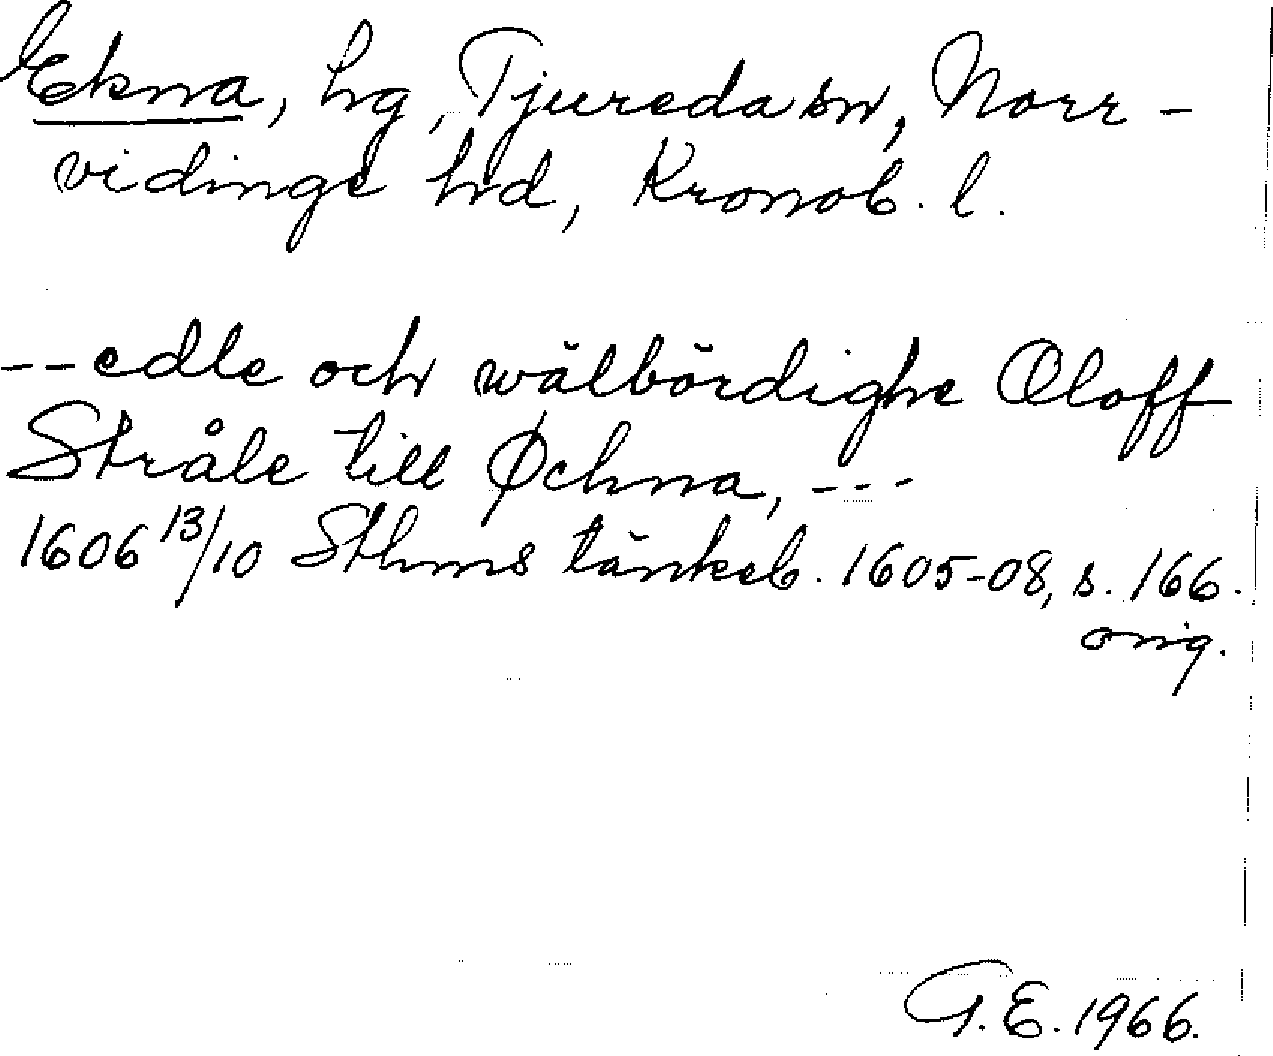 Ekna, hg, Tjureda sn, Norr-
vidinge hd, Kronob. l.
--edle och wälbördighe Oloff
Stråle till Øchna, ---
1606 13/10 Sthms tänkeb. 1605-08, s. 166.
orig.
G.E. 1966.